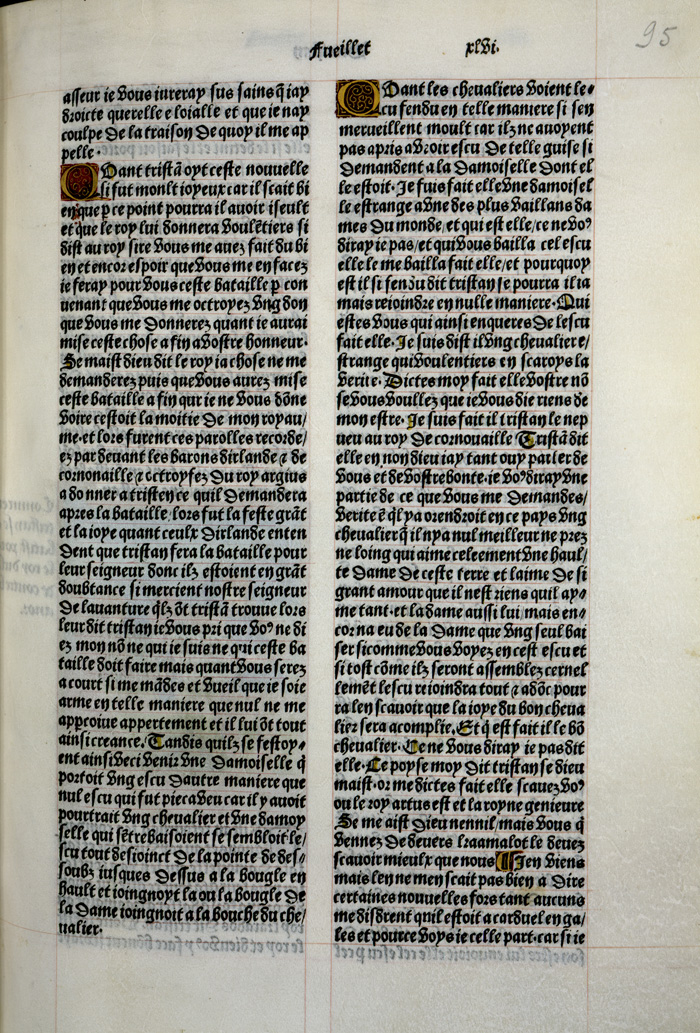 Fueillet xlvi.
95
asseur ie vous iureray sus sains q̃ iay
droicte querelle e loialle et que ie nay
coulpe de la traison de quoy il me ap
pelle.
Quant tristã oyt ceste nouuelle
si fut moult ioyeux car il scait bi
en que p ce point pourra il auoir iseult
et que le roy lui donnera voulẽtiers si
dist au roy sire vous me auez fait du bi
en et encor espoir que vous me en facez
ie feray pour vous ceste bataille p con
uenant que vous me octroyez vng don
que vous me donnerez quant ie aurai
mise ceste chose a fin a vostre honneur.
Se maist dieu dit le roy ia chose ne me
demanderez puis que vous aurez mise
ceste bataille a fin qur ie ne vous dõne
voire cestoit la moitie de mon royau/
me. et lors furent ces parolles recorde/
ez par deuant les barons dirlande ⁊ de
cornouaille ⁊ octroyfez du roy argius
a donner a tristen ce quil demandera
apres la bataille/ lors fut la feste grãt
et la ioye quant ceulx dirlande enten
dent que tristan fera la bataille pour
leur seigneur donc ilz estoient en grãt
doubtance si mercient nostre seigneur
de lauanture q̃lz õt tristã trouue lors
leur dit tristan ie vous pri que voꝰ ne di
ez mon nõ ne qui ie suis ne qui ceste ba
taille doit faire mais quant vous serez
a court si me mãdes et vueil que ie soie
arme en telle maniere que nul ne me
appcoiue appertement et il lui õt tout
ainsi creance. Tandis quilz se festoy-
ent ainsi veci venir vne damoiselle q̃
portoit vng escu dautre maniere que
nul escu qui fut pieca veu car il y auoit
pourtrait vng cheualier et vne damoy
selle qui sẽtrebaisoient se sembloit le/
scu tout desioinct de la pointe de des-
soubz iusques dessus a la bougle en
hault et ioingnoyt la ou la bougle de
la dame ioingnoit a la bouche du che/
ualier.
Quant les cheualiers voient le-
cu fendu en telle maniere si sen
merueillent moult car ilz ne auoyent
pas apris a veoir escu de telle guise si
demandent a la damoiselle dont el
le estoit. Je suis fait elle vne damoisel
le estrange a vne des plus vaillans da
mes du monde/ et qui est elle/ ce ne voꝰ
diray ie pas/ et qui vous bailla cel escu
elle le me bailla fait elle/ et pourquoy
est il si fendu dit tristan se pourra il ia
mais reioindre en nulle maniere. Qui
estes vous qui ainsi enqueres de lescu
fait elle. Je suis dist il vng cheualier e/
strange qui voulentiers en scaroys la
verite. Dictes moy fait elle vostre nõ
se vous voullez que ie vous die riens de
mon estre. Je suis fait il tristan le nep
ueu au roy de cornouaille Tristã dit
elle en non dieu iay tant ouy parler de
vous et de vostre bonte. ie voꝰ diray vne
partie de ce que vous me demandes/
verite ẽ q̃l ya orendroit en ce pays vng
cheualier q̃ il n'y a nul meilleur ne prez
ne loing qui aime celeement vne haul/
te dame de ceste terre et laime de si
grant amour que il nest riens quil ay-
me tant. et la dame aussi lui mais en-
cor na eu de la dame que vng seul bai
ser si comme vous voyez en cest escu et
si tost cõme ilz seront assemblez cernel
lemẽt lescu reioindra tout ⁊ adõc pour
ra len scauoir que la ioye du bon cheua
lier sera acomplie. Et q̃ est fait il le bõ
cheualier. Ce ne vous diray ie pas dit
elle. Ce poyse moy dit tristan se dieu
maist. or me dictes fait elle scauez voꝰ
ou le roy artus est et la royne genieure
Se me aist dieu nennil/ mais vous q̃
vennez de deuers kraamalot le deuez
scauoir mieulx que nous Jen viens
mais len ne men scait pas bien a dire
certaines nouuelles fors tant aucuns
me disdrent qnil estoit a carduel en ga/
les et pource voys ie celle part. car si ie